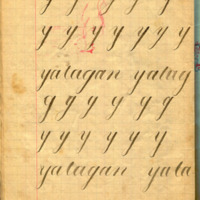 y y y y y y
y y y y y y
yalagan yalag
y y y y y y
y y y y y y
yalagan yala